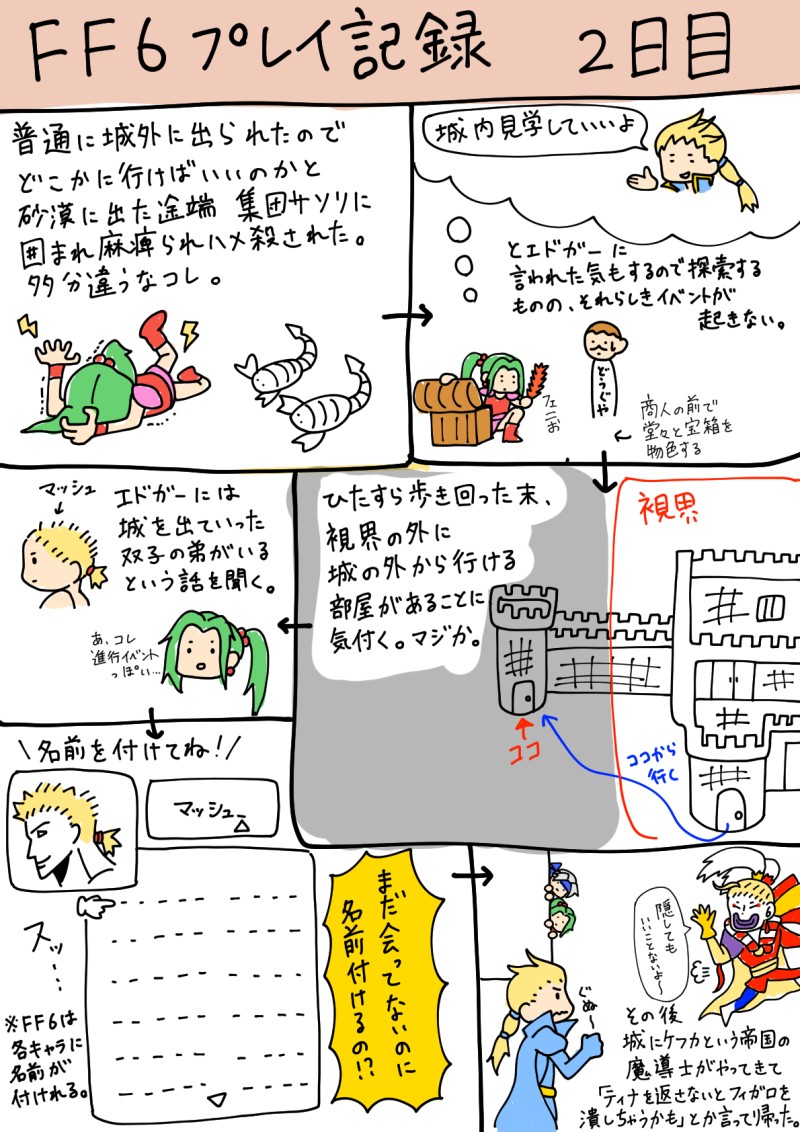 FF6プレイ記録 2日目
普通に城外に出られたので
どこかに行けばいいのかと
砂漠に出た途端 集団サソリに
囲まれ麻痺られハメ殺された。
多分違うなコレ。
城内見学していいよ
とエドガーに
言われた気もするので探索する
ものの、それらしきイベントが
起きない。
フェニお
どうぐや
商人の前で
堂々と宝箱を
物色する
視界
ひたすら歩き回った末、
視界の外に
城の外から行ける
部屋があることに
気付く。マジか。
ココ
ココから
行く
マッシュ
エドガーには
城を出ていった
双子の弟がいる
という話を聞く。
あ、コレ
進行イベント
っぽい…
\名前を付けてね!/
マッシュ
スッ…
※FF6は
各キャラに
名前が
付けれる。
まだ会ってないのに
名前付けるの!?
隠しても
いいことないよ〜
ぐぬ〜
その後
城にケフカという帝国の
魔導士がやってきて
「ティナを返さないとフィガロを
潰しちゃうかも」とか言って帰った。